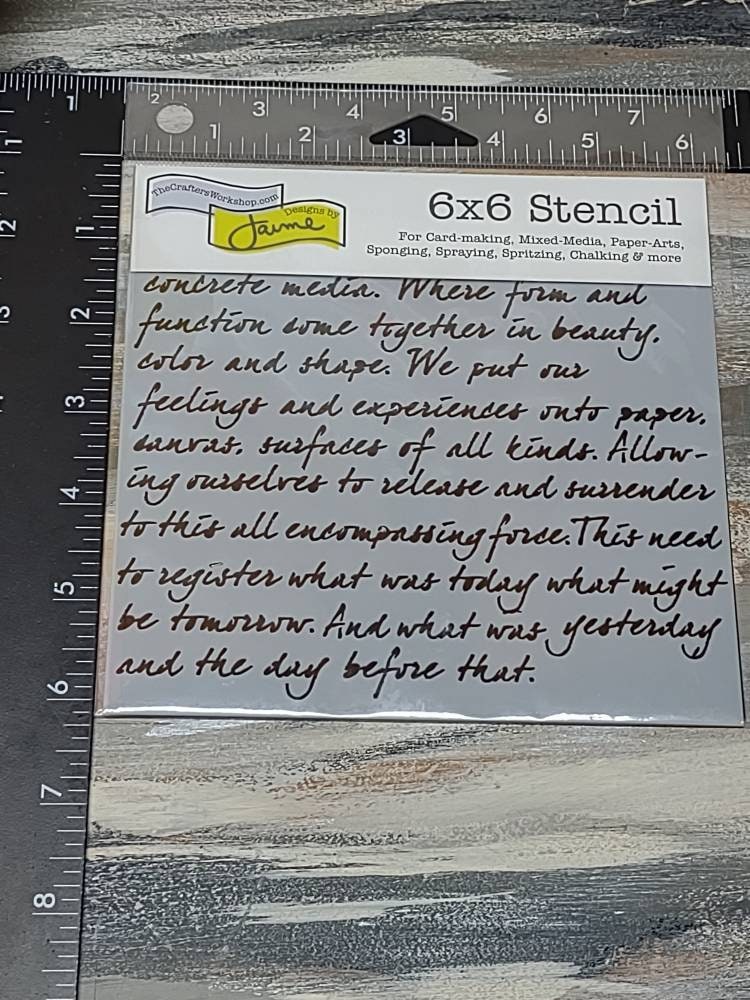 1
2 3 4 5 6 7
1 2 3 4 5 6
TheCraftersWorkshop.com
Designs by
Jaime
6x6 Stencil
For Card-making, Mixed-Media, Paper-Arts,
Sponging, Spraying, Spritzing, Chalking & more
concrete media. Where form and
function come together in beauty,
color and shape. We put our
feelings and experiences onto paper,
canvas, surfaces of all kinds. Allow-
ing ourselves to release and surrender
to this all encompassing force. This need
to register what was today what might
be tomorrow. And what was yesterday
and the day before that.
1
2
3
4
5
6
7
8
1
2
3